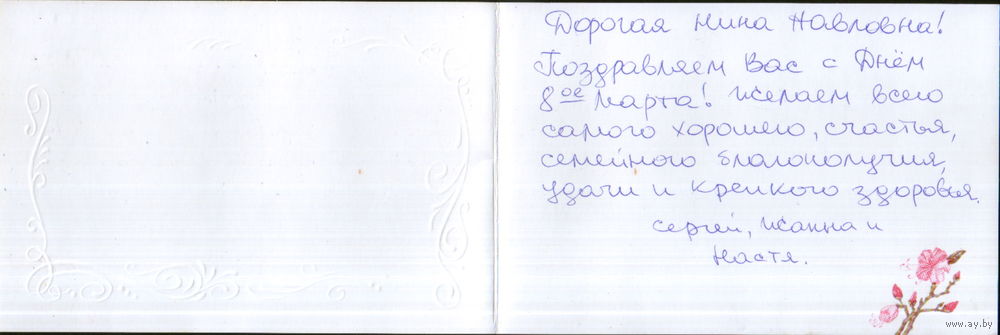 Дорогая Нина Павловна!
Поздравляем Вас с Днём
8ое Марта! Желаем всего
самого хорошего, счастья,
семейного благополучия,
удачи и крепкого здоровья.
Сергей, Жанна и
Настя.
www.ay.by